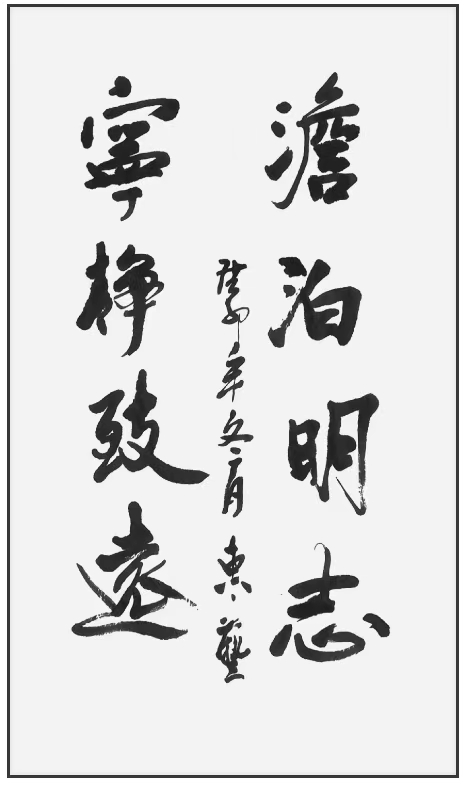 澹泊明志
寧静致遠
癸卯年冬月 藝